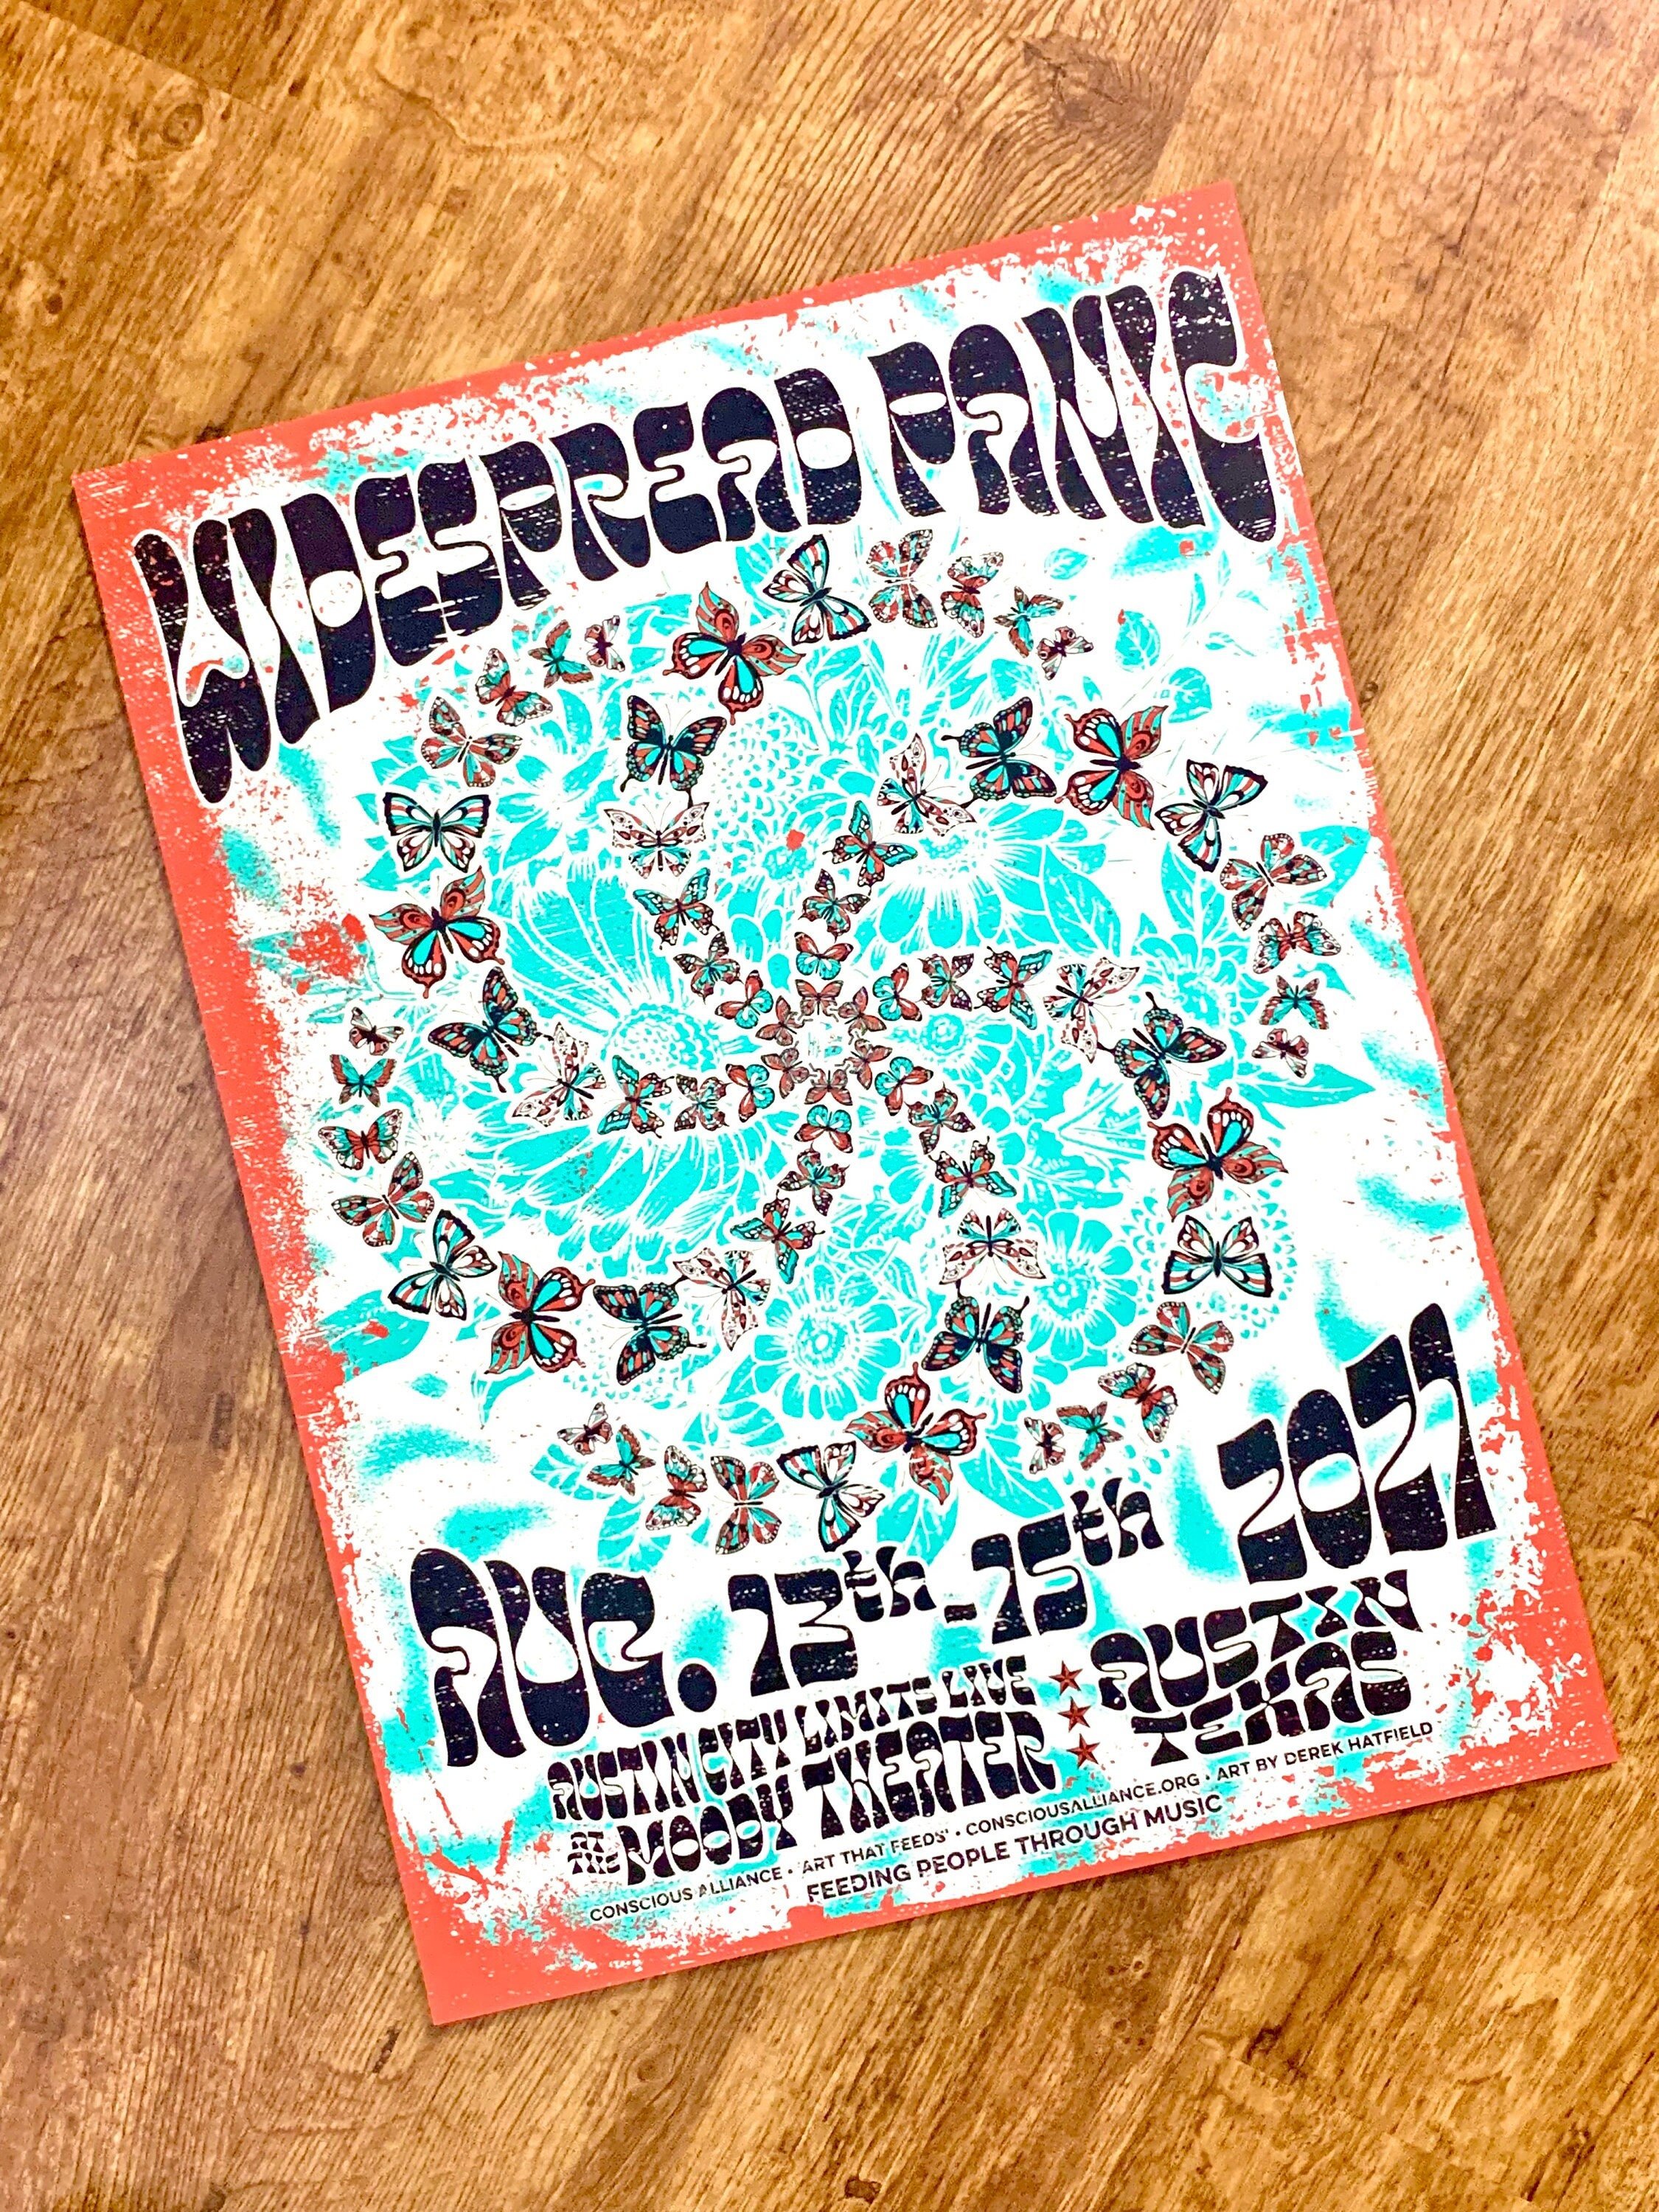 WIDESPREAD PANIC
AUG. 13th-15th 2021
AUSTIN CITY LIMITS LIVE
AT THE MOODY THEATER
AUSTIN
TEXAS
CONSCIOUS ALLIANCE • 'ART THAT FEEDS' • CONSCIOUSALLIANCE.ORG • ART BY DEREK HATFIELD
FEEDING PEOPLE THROUGH MUSIC